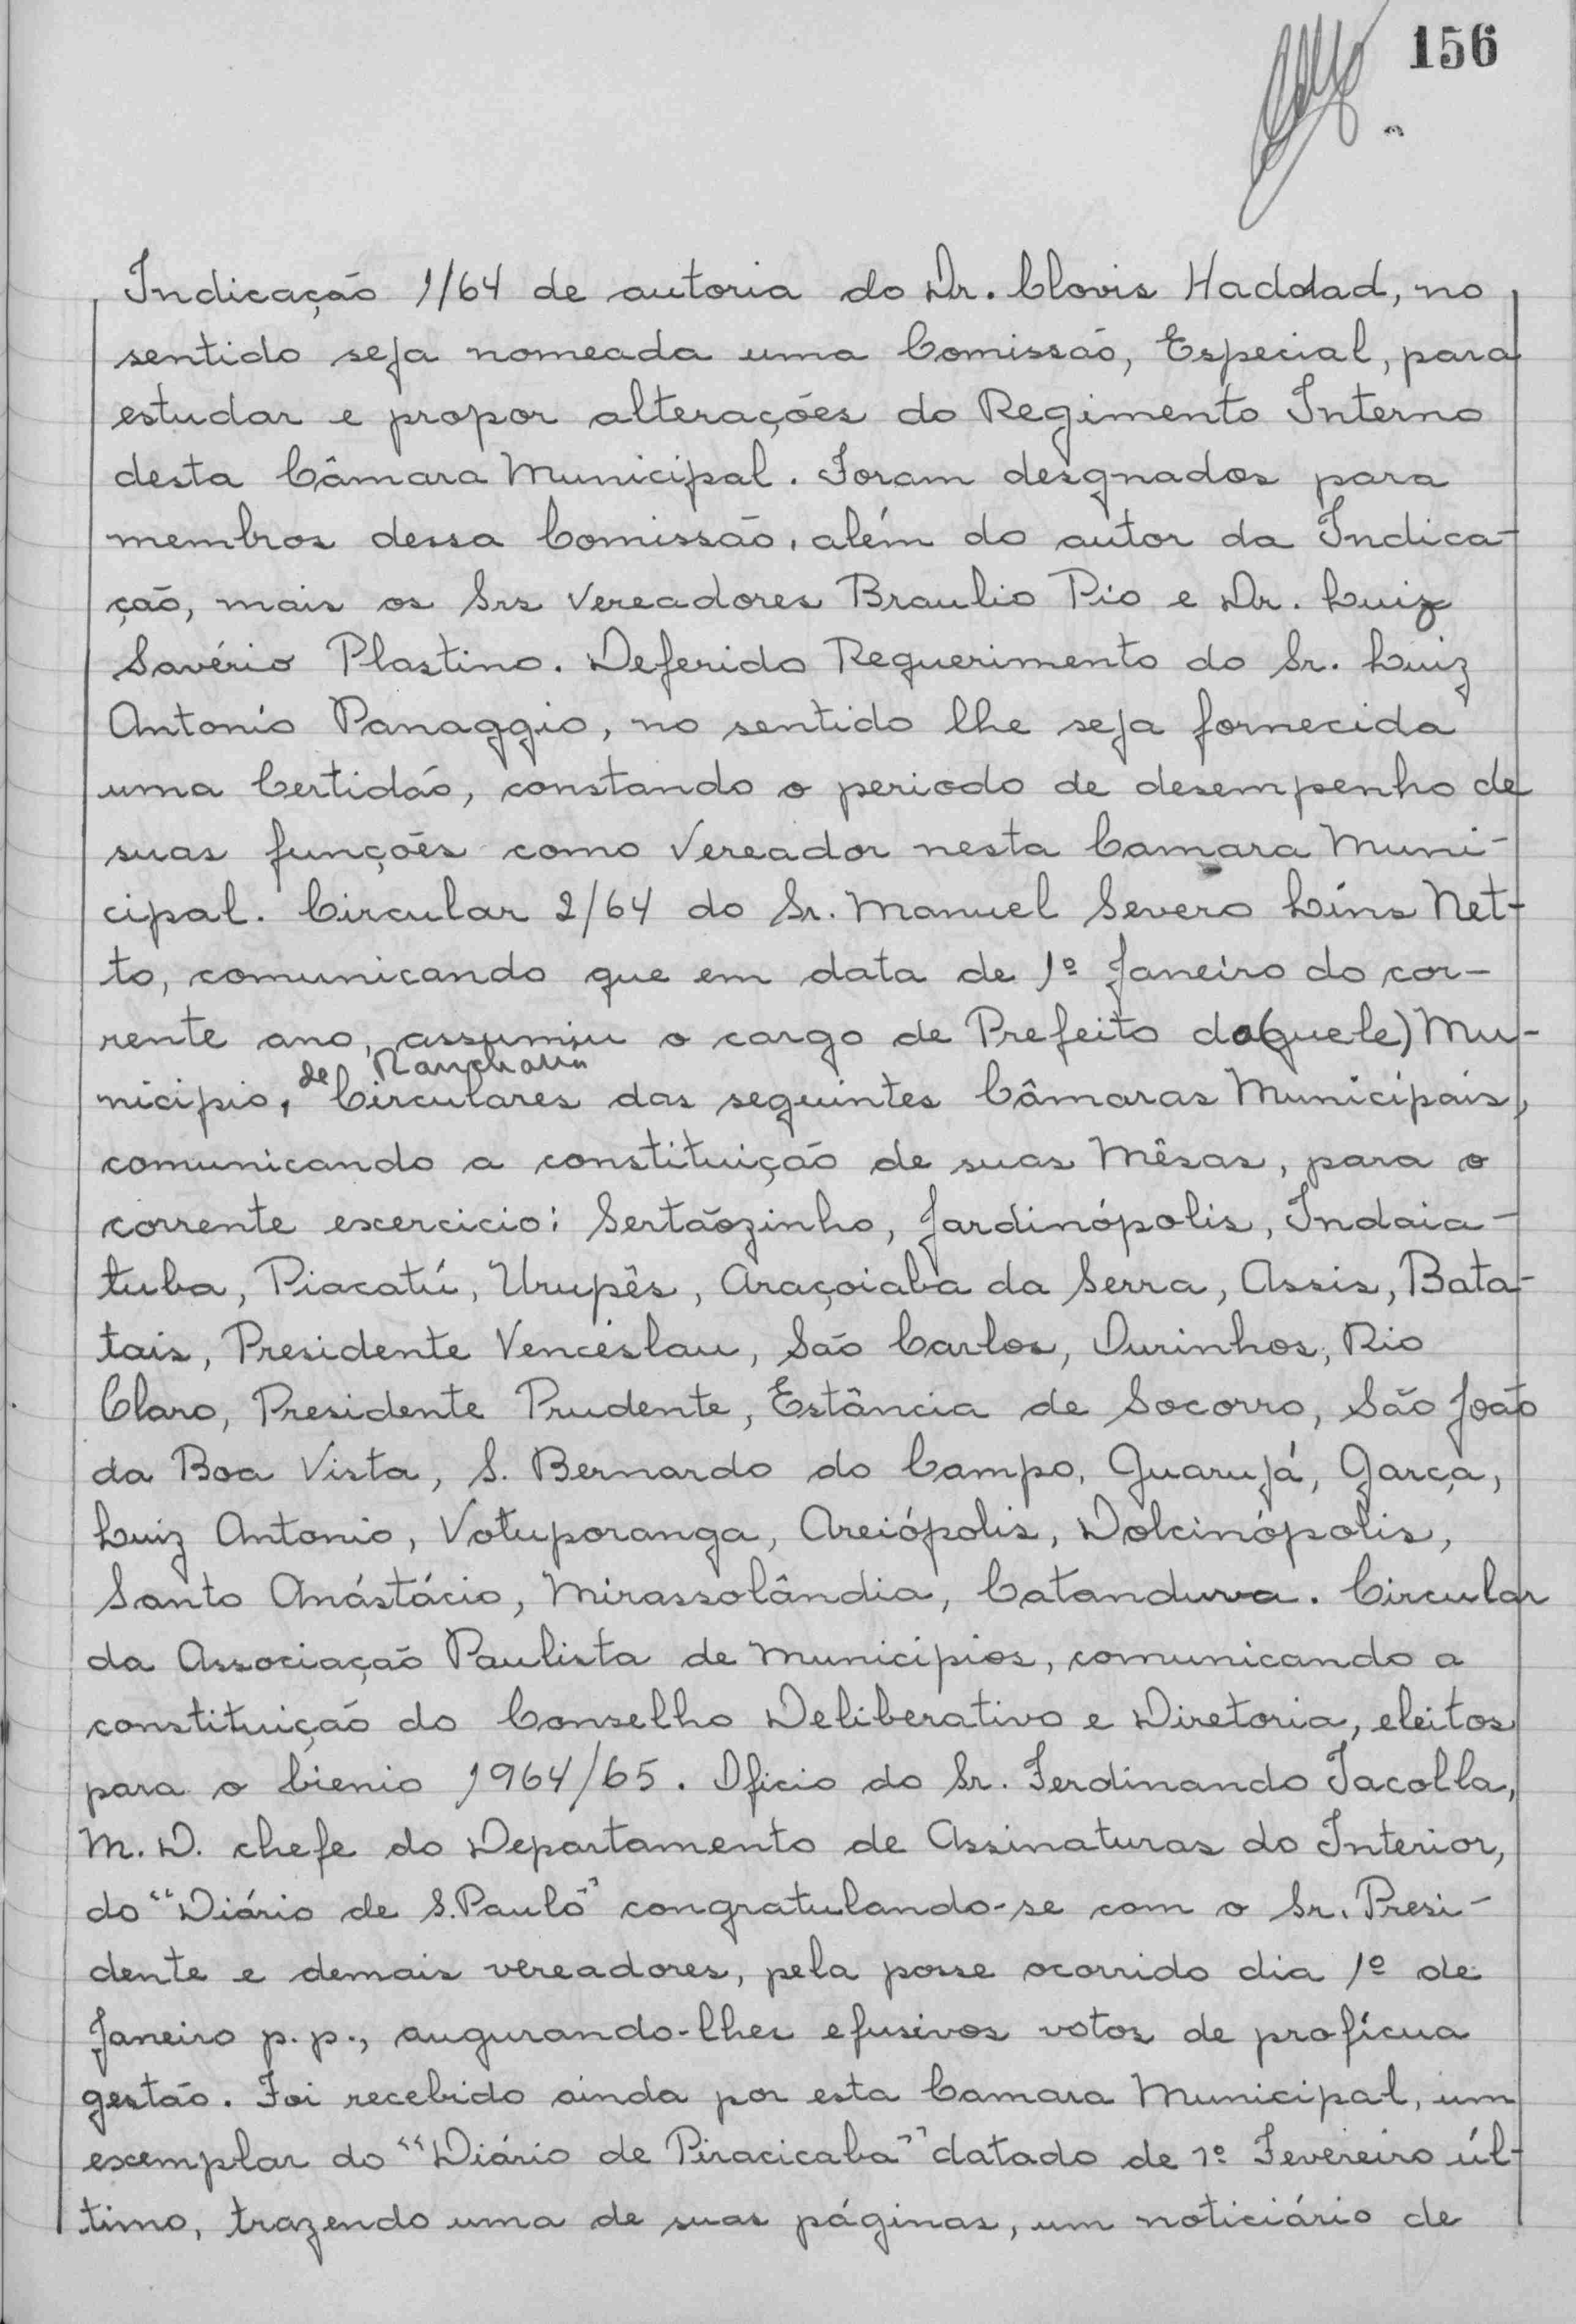 156
Indicação 1/64 de autoria do Dr. Clovis Haddad, no
sentido seja nomeada uma Comissão, Especial, para
estudar e propor alterações do Regimento Interno
desta Câmara Municipal. Foram desgnados para
membros dessa Comissão, além do autor da Indica-
ção, mais os Srs Vereadores Braulio Pio e Dr. Luiz
Savério Plastino. Deferido Requerimento do Sr. Luiz
Antonio Panaggio, no sentido lhe seja fornecida
uma Certidão, constando o periodo de desempenho de
suas funções como Vereador nesta Camara Muni-
cipal. Circular 2/64 do Sr. Manuel Severo Lins Net-
to, comunicando que em data de 1º Janeiro do cor-
rente ano, assumiu o cargo de Prefeito da(quele) Mu-
de Rancharia
nicipio. Circulares das seguintes Câmaras Municipais,
comunicando a constituição de suas Mêsas, para o
corrente excercicio: Sertãozinho, Jardinópolis, Indaia-
tuba, Piacatú, Urupês, Araçoiaba da Serra, Assis, Bata-
tais, Presidente Vencéslau, São Carlos, Ourinhos, Rio
Claro, Presidente Prudente, Estância de Socorro, São João
da Boa Vista, S. Bernardo do Campo, Guarujá, Garça,
Luiz Antonio, Votuporanga, Areiópolis, Dolcinópolis,
Santo Anástácio, Mirassolândia, Catanduva. Circular
da Associação Paulista de Municipios, comunicando a
constituição do Conselho Deliberativo e Diretoria, eleitos
para o bienio 1964/65. Oficio do Sr. Ferdinando Iacolla,
M. D. chefe do Departamento de Assinaturas do Interior,
do "Diário de S.Paulo" congratulando-se com o Sr. Presi-
dente e demais vereadores, pela posse ocorrido dia 1º de
Janeiro p.p., augurando-lhes efusivos votos de profícua
gestão. Foi recebido ainda por esta Camara Municipal, um
excemplar do "Diário de Piracicaba" datado de 1º Fevereiro úl-
timo, trazendo uma de suas páginas, um noticiário de